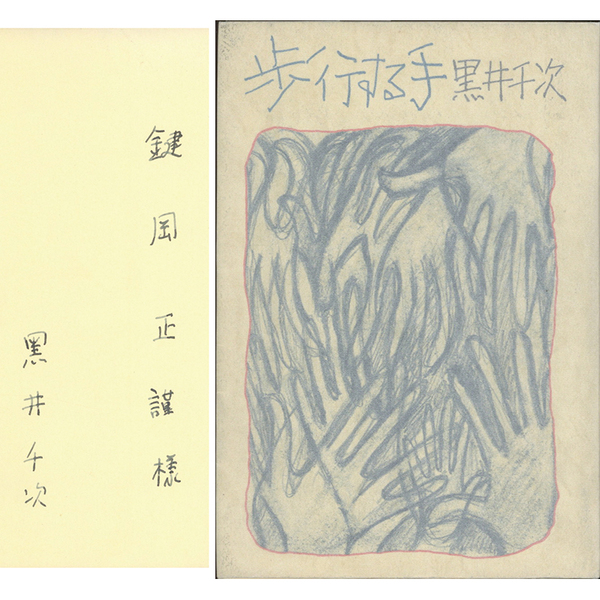 鍵岡正謹様
黒井千次
歩行する手 黒井千次